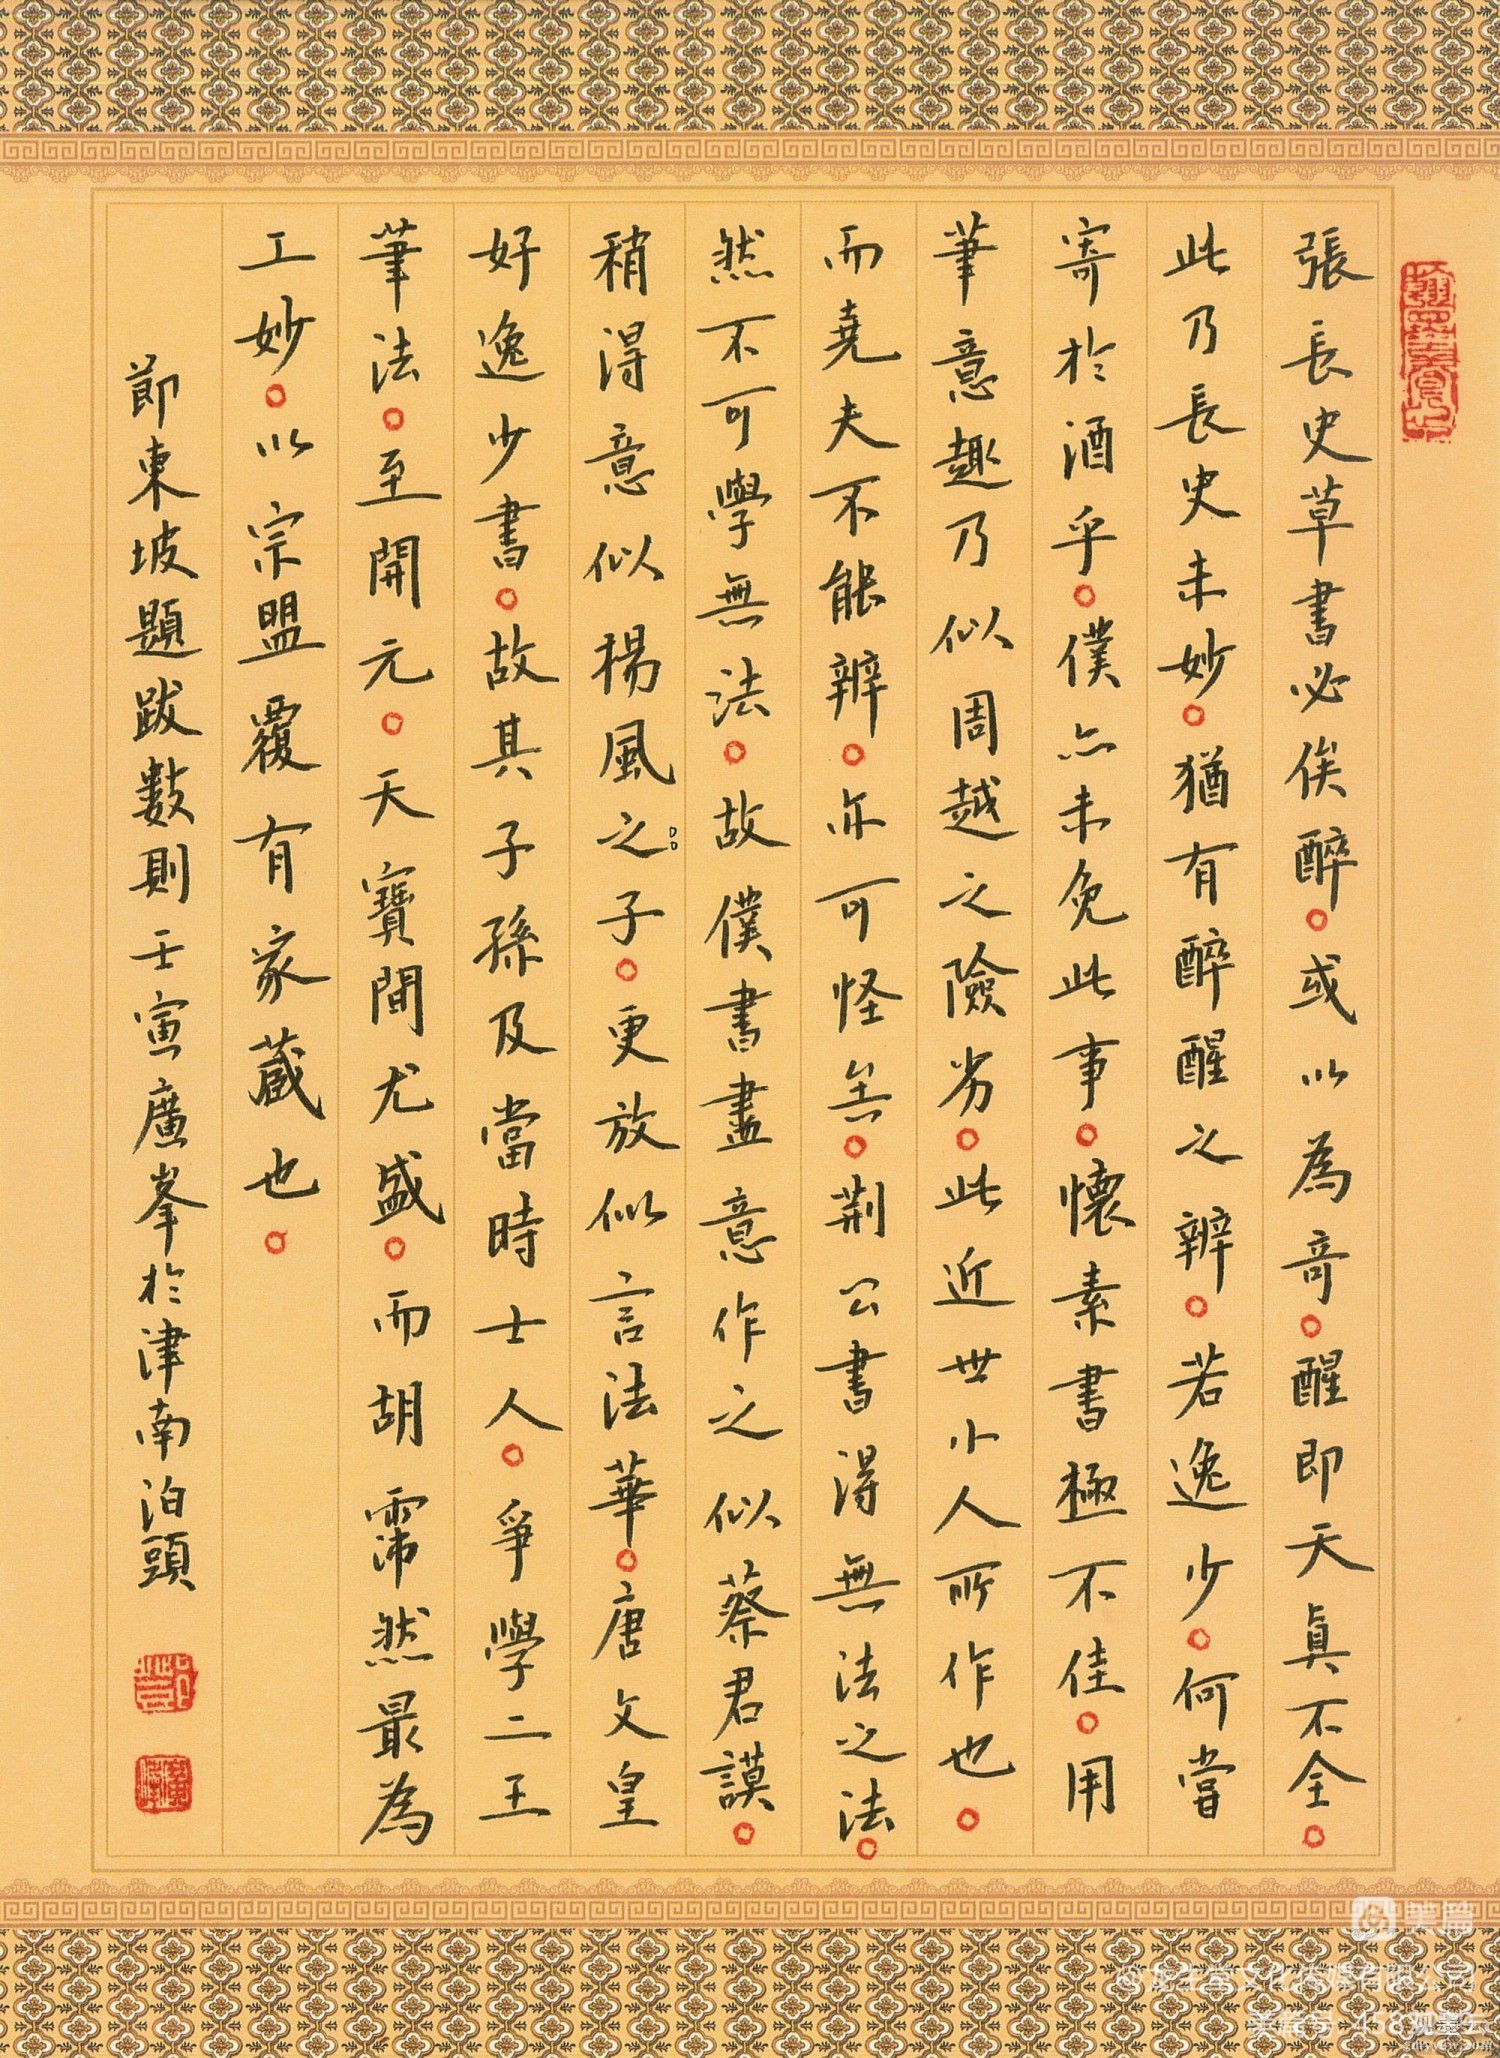 張長史草書必俟醉。或以為奇。醒即天真不全。
此乃長史未妙。猶有醉醒之辨。若逸少。何當
寄於酒乎。僕亦未免此事。懷素書極不佳。用
筆意趣乃似周越之險劣。此近世小人所作也。
而堯夫不能辨。亦可怪矣。荆公書得無法之法。
然不可學無法。故僕書盡意作之似蔡君謨。
稍得意似楊風之子。更放似言法華。唐文皇
好逸少書。故其子孫及當時士人。爭學二王
筆法。至開元。天寶間尤盛。而胡霈然最為
工妙。以宗盟覆有家藏也。
節東坡題跋數則 壬寅廣峯於津南泊頭
美篇
@龙生堂文化传媒有限公司